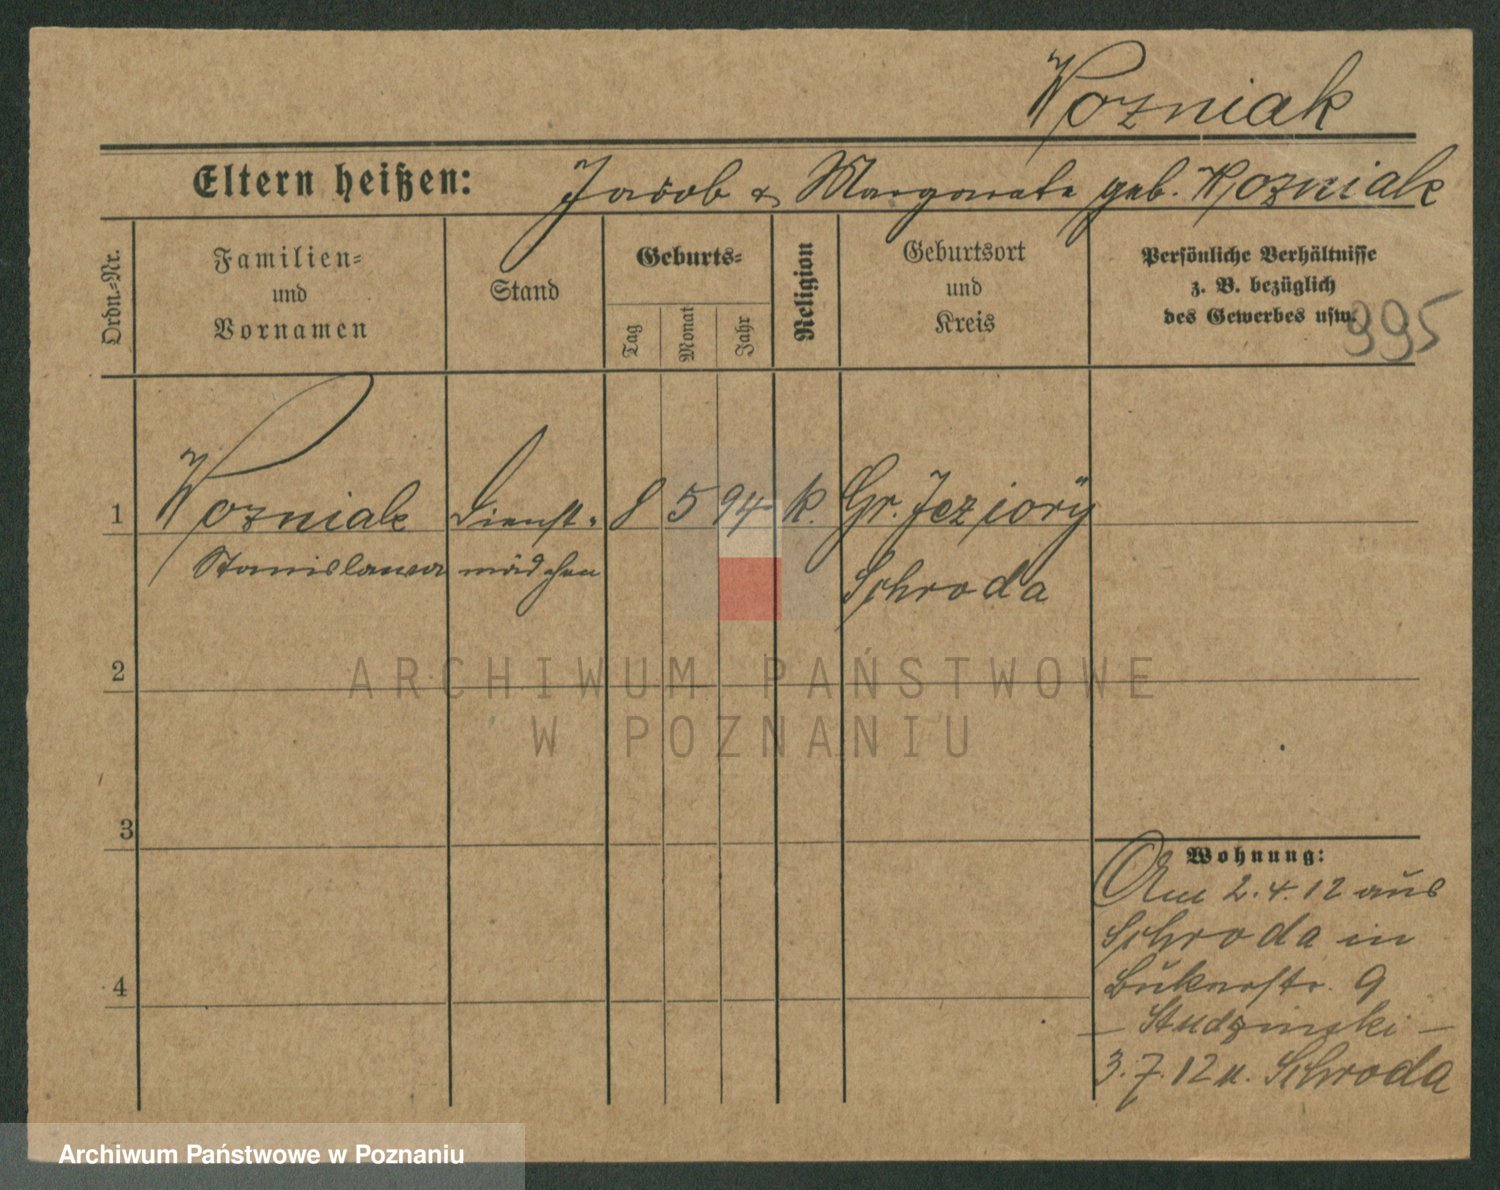 Wozniak
Eltern heißen: Jacob & Margarete geb. Wozniak
Ordn.-Nr.
Familien- und Vornamen
Stand
Geburts-
Tag
Monat
Jahr
Religion
Geburtsort und Kreis
Persönliche Verhältnisse
z. B. bezüglich
des Gewerbes usw.
995
1 Wozniak Dienst- 8 5 94 k. Gr. Jeziory
Stanislawa mädchen Schroda
2
3
4
Wohnung:
Am 2.4.12 aus
Schroda in
Bukerstr. 9
– Studzinski –
3.7.12 n. Schroda
ARCHIWUM PAŃSTWOWE
W POZNANIU
Archiwum Państwowe w Poznaniu